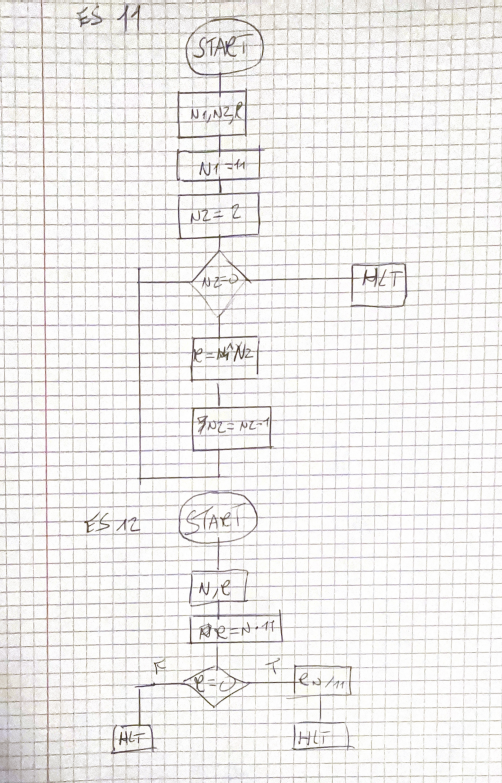 ES 11
START
N1,N2,R
N1=11
N2=2
N2=0
HLT
N2=N2-1
ES 12
START
N,R
R=N-11
F
R=0
T
HLT
HLT